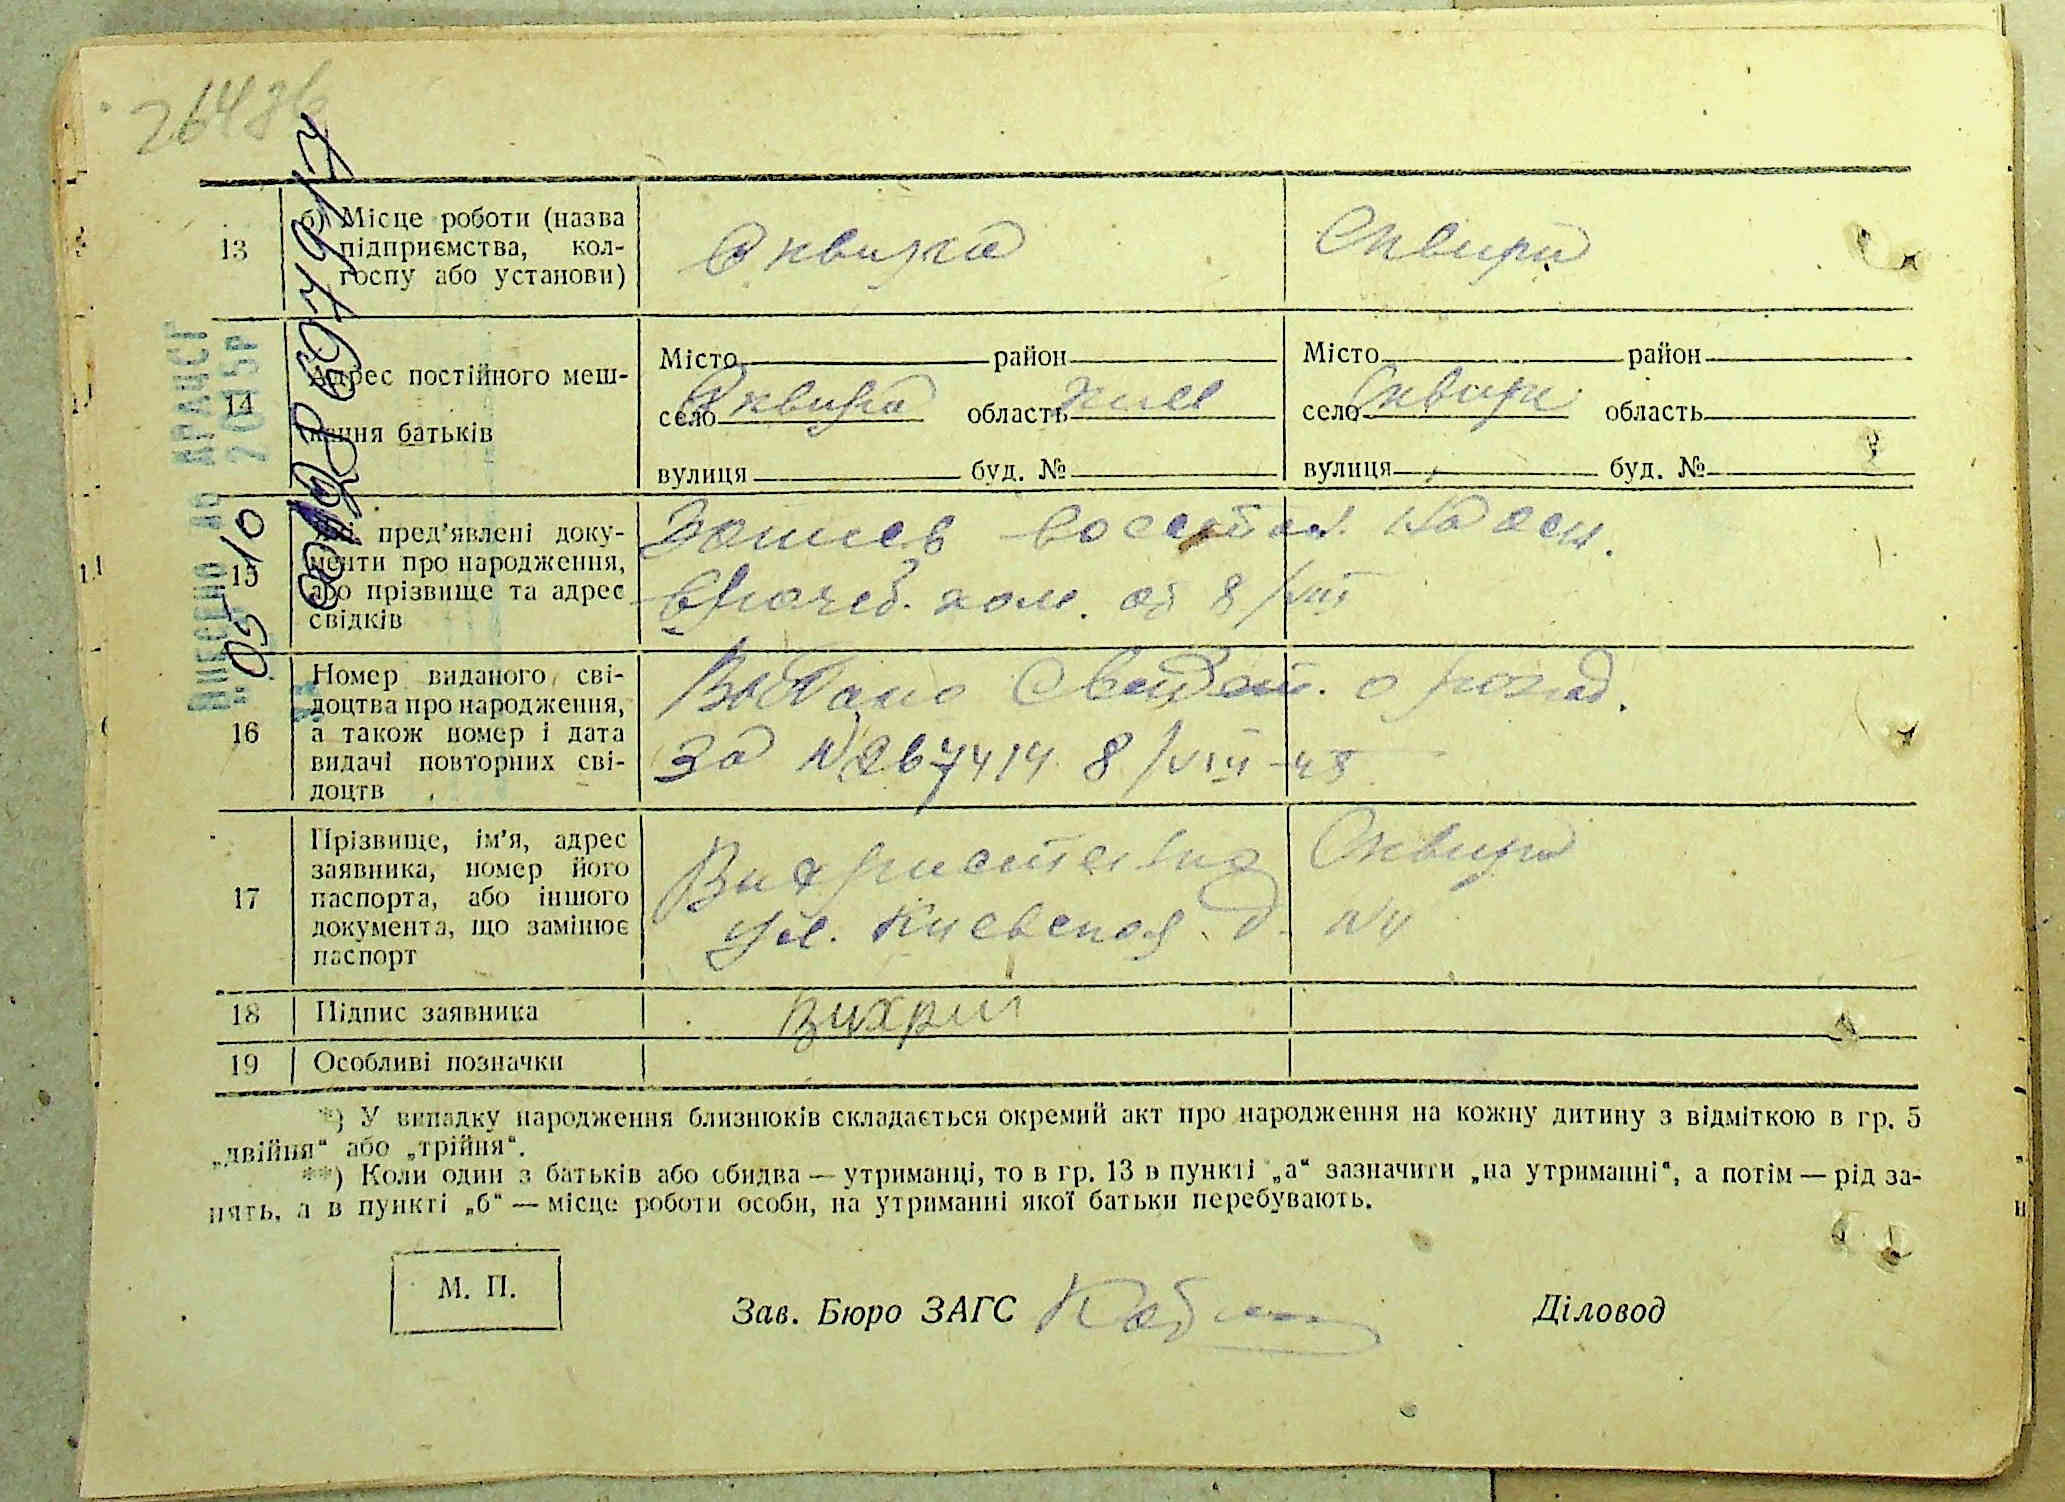 13
б) Місце роботи (назва
підприємства, кол-
госпу або установи)
Сквира
Сквира
14
Адрес постійного меш-
кання батьків
Місто район
село Сквира область Киев
вулиця буд. №
Місто район
село Сквира область
вулиця буд. №
15
Які пред'явлені доку-
менти про народження,
або прізвище та адрес
свідків
Запись восстан. на осн.
врачеб. ком. от 8/VIII
16
Номер виданого сві-
доцтва про народження,
а також номер і дата
видачі повторних сві-
доцтв
Выдано свидет. о рожд.
за N 267414 8/VIII-45
17
Прізвище, ім'я, адрес
заявника, номер його
паспорта, або іншого
документа, що замінює
паспорт
Сквира
ул. Киевская д. N4
18
Підпис заявника
Вихрист
19
Особливі позначки
*) У випадку народження близнюків складається окремий акт про народження на кожну дитину з відміткою в гр. 5
„двійня“ або „трійня“.
**) Коли один з батьків або обидва — утриманці, то в гр. 13 в пункті „а“ зазначити „на утриманні“, а потім — рід за-
нять, а в пункті „б“ — місце роботи особи, на утриманні якої батьки перебувають.
М. П.
Зав. Бюро ЗАГС
Діловод
ВНЕСЕНО ДО ДРАЦСГ
05-10 2015Р